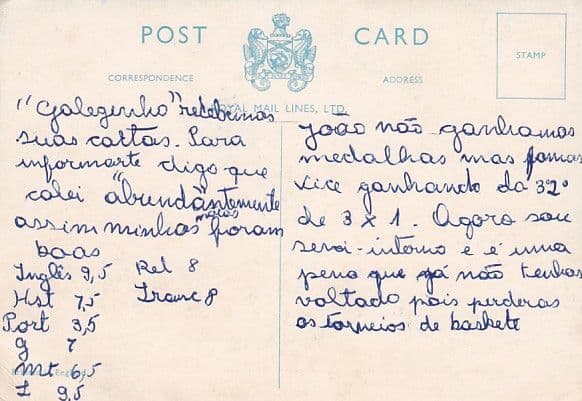 POST CARD
CORRESPONDENCE
ADDRESS
STAMP
ROYAL MAIL LINES, LTD.
"Galeginho" recebemos
suas cartas. Para
informarte digo que
colei "abundantemente
assim minhas mais foram
boas
Inglês 9,5
Hst 7,5
Port 3,5
g 7
Mt 6,5
L 9,5
Rel 8
Franc 8
England
João não ganhamos
medalhas mas fomos
vice ganhando da 3º2º
de 3 x 1. Agora sou
semi-interno e é uma
pena que já não tenhas
voltado pois perderas
os torneios de baskete